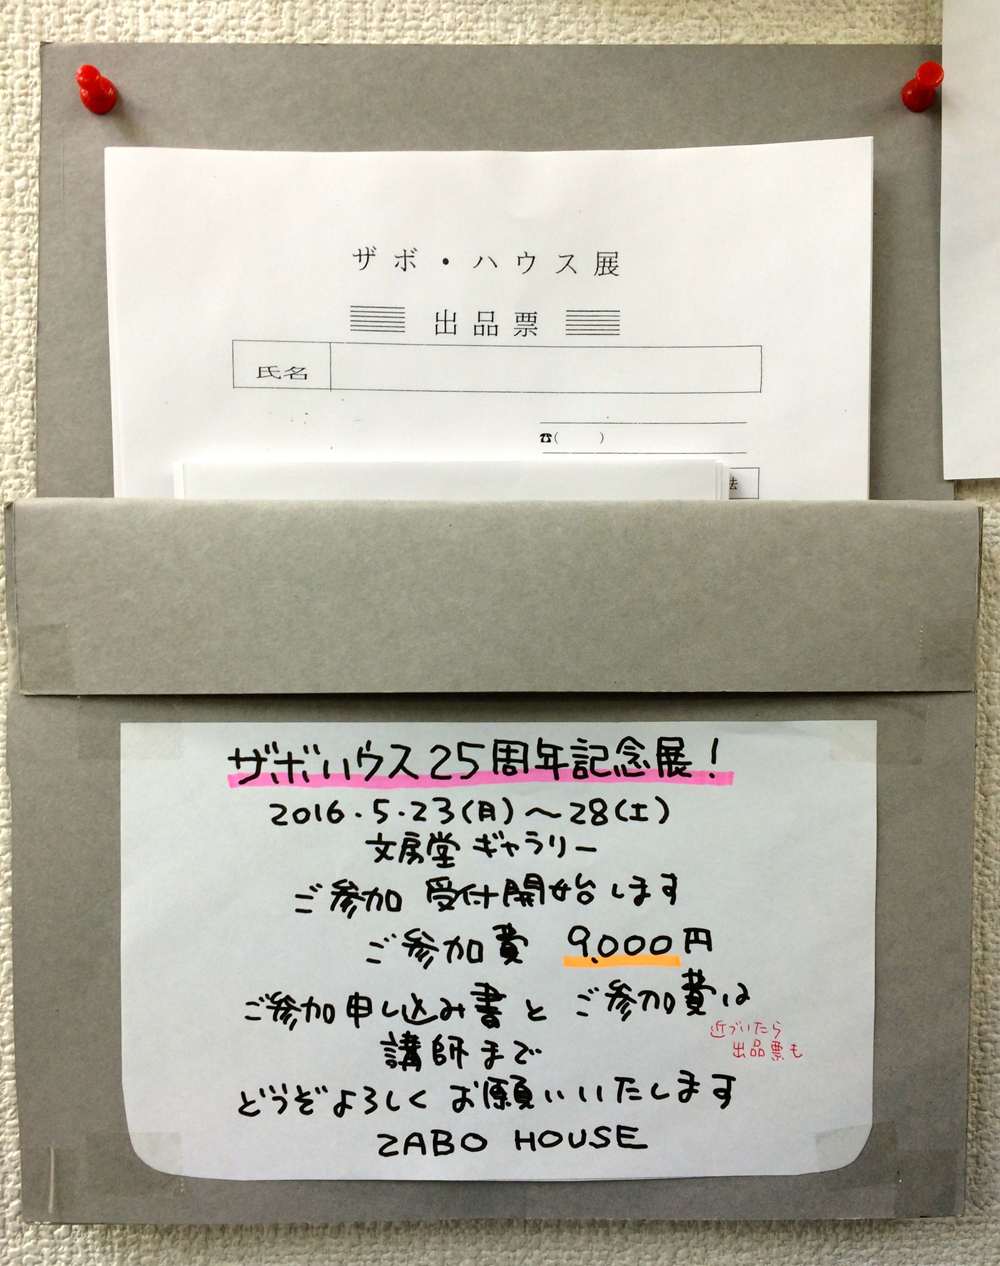 ザボ・ハウス展
出品票
氏名
☎( )
法
ザボハウス25周年記念展！
2016.5.23(月)～28(土)
文房堂ギャラリー
ご参加 受付開始します
ご参加費 9,000円
ご参加申し込み書と ご参加費は
近づいたら
出品票も
講師まで
どうぞよろしくお願いいたします
ZABO HOUSE